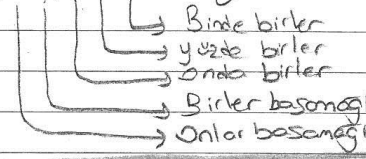 Binde birler
yüzde birler
onda birler
Birler basamağı
Onlar basamağı